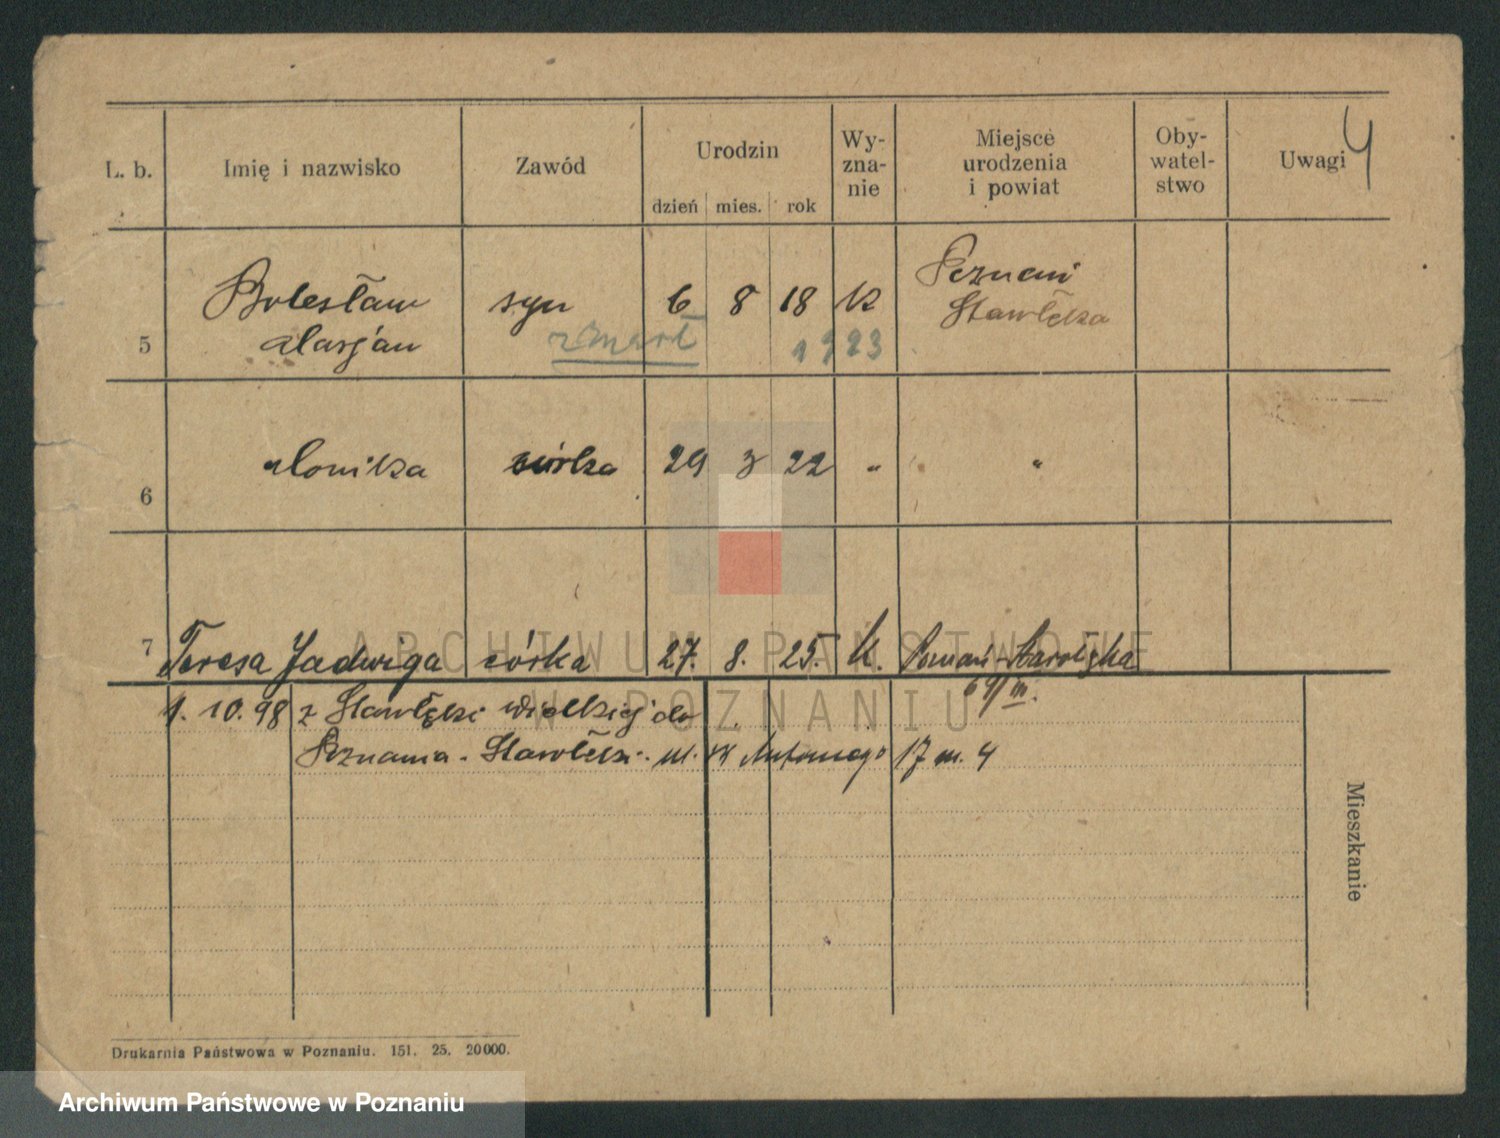 4
L. b. Imię i nazwisko Zawód Urodzin Wy-zna-nie Miejsce urodzenia i powiat Oby-watel-stwo Uwagi
dzień mies. rok
5 Bolesław syn 6 8 18 K Poznań
Starołęka
Marjan zmarł 1923
6 Monika córka 29 3 22 " "
7 Teresa Jadwiga córka 27. 8. 25. K. Poznań-Starołęka
1. 10. 98 z Starołęki wielkiej do
Poznania - Starołęki. ul. Antoniego 17 m. 4
Mieszkanie
Drukarnia Państwowa w Poznaniu. 151. 25. 20000.
ARCHIWUM PAŃSTWOWE
W POZNANIU
Archiwum Państwowe w Poznaniu